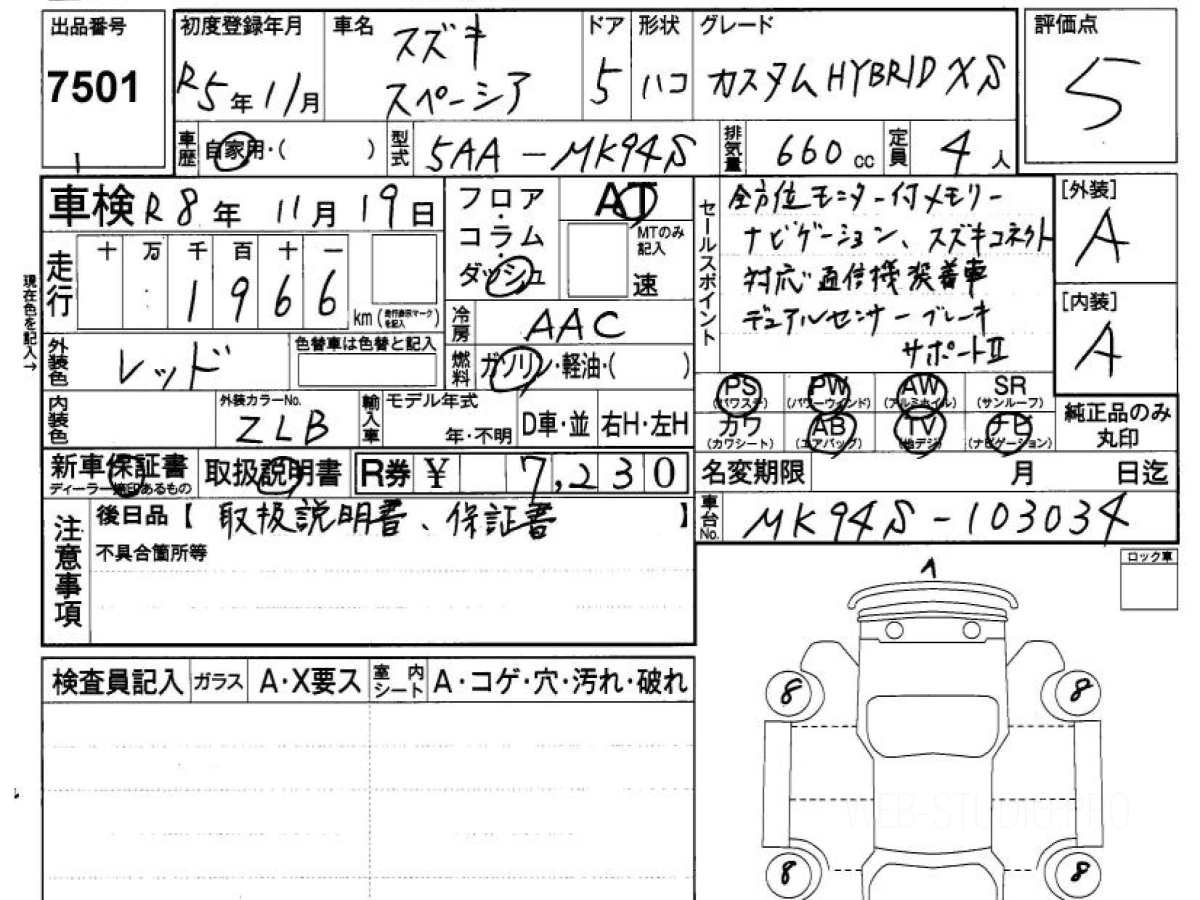 出品番号
7501
初度登録年月
R5年11月
車名
スズキ
スペーシア
ドア
5
形状
ハコ
グレード
カスタムHYBRID XS
評価点
5
車歴
自家用・( )
型式
5AA-MK94S
排気量
660cc
定員
4人
車検 R8年11月19日
フロア・コラム・ダッシュ
AT
MTのみ記入
速
セールスポイント
全方位モニター付メモリー
ナビゲーション、スズキコネクト
対応通信機装着車
デュアルセンサーブレーキ
サポートⅡ
[外装]
A
[内装]
A
現在色を記入→
走行
十 万 千 百 十 一
1 9 6 6
km(走行表示マークを記入)
冷房
AAC
外装色
レッド
色替車は色替と記入
燃料
ガソリン・軽油・( )
PS (パワステ)
PW (パワーウインド)
AW (アルミホイル)
SR (サンルーフ)
カワ (カワシート)
AB (エアバッグ)
TV (地デジ)
ナビ (ナビゲーション)
純正品のみ丸印
内装色
外装カラーNo.
ZLB
輸入車
モデル年式
年・不明
D車・並
右H・左H
新車保証書
ディーラー捺印あるもの
取扱説明書
R券 ¥ 7,230
名変期限 月 日迄
車台No.
MK94S-103034
注意事項
後日品【 取扱説明書、保証書 】
不具合箇所等
ロック車
検査員記入
ガラス
A・X要ス
室内シート
A・コゲ・穴・汚れ・破れ
8
8
8
8
WEB-STUDIO.PRO